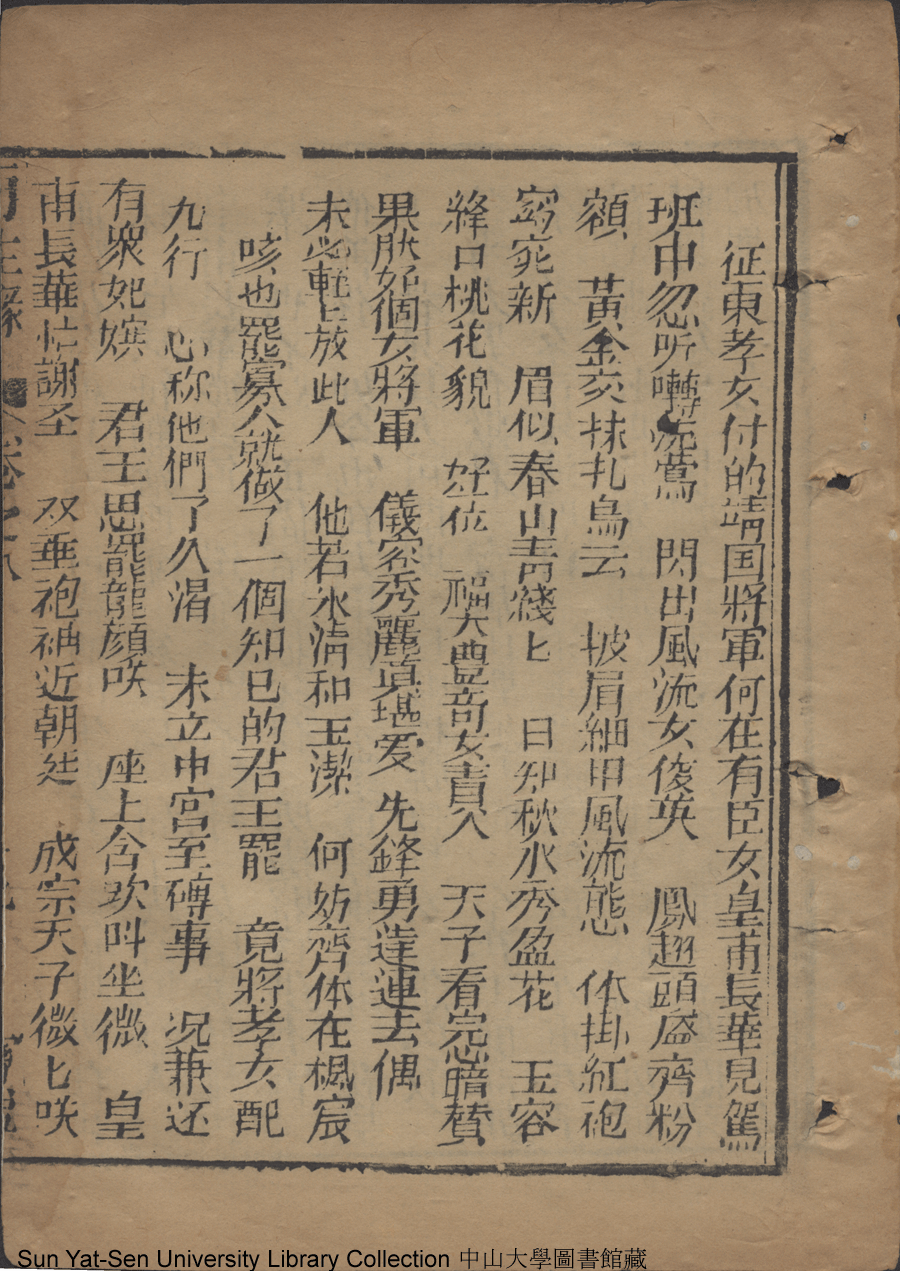 征東孝女付的靖国將軍何在有臣女皇甫長華見駕
班中忽听囀流鶯　閃出風流女俊英　鳳翅頭盛齊粉
額　黃金亥抹扎烏云　披眉細甲風流態　体掛紅砲
窈窕新　眉似春山青綫匕　目如秋水秀盈花　玉容
絳口桃花貌　好位　福大豊奇女責人　天子看完暗暗賛
果肰好個女將軍　儀容秀麗真堪爱　先鋒勇達連去偶
未必輕上放此人　他若氷清和玉潔　何妨齊体在楓宸
咳也罷寡人就做了一個知已的君王罷　竟將孝女配
九行　心称他們了久渴　未立中宮至磚事　况兼还
有衆妃嬪　君王思罷龍顔咲　座上含欢叫坐微　皇
甫長華忙謝圣　双垂袍袖近朝廷　成宗天子微匕咲
生緣　卷之八
Sun Yat-Sen University Library Collection 中山大學圖書館藏